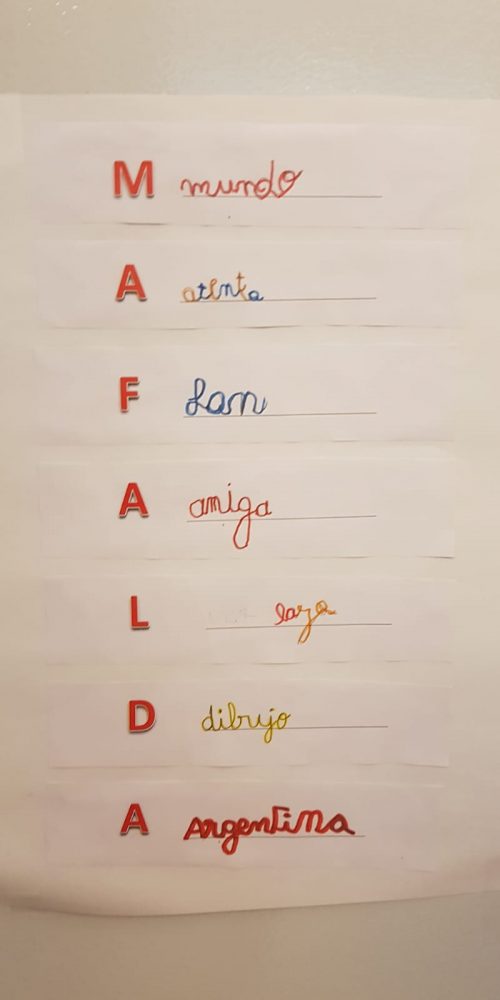 M mundo
A atenta
F Fam
A amiga
L
D dibujo
A Argentina